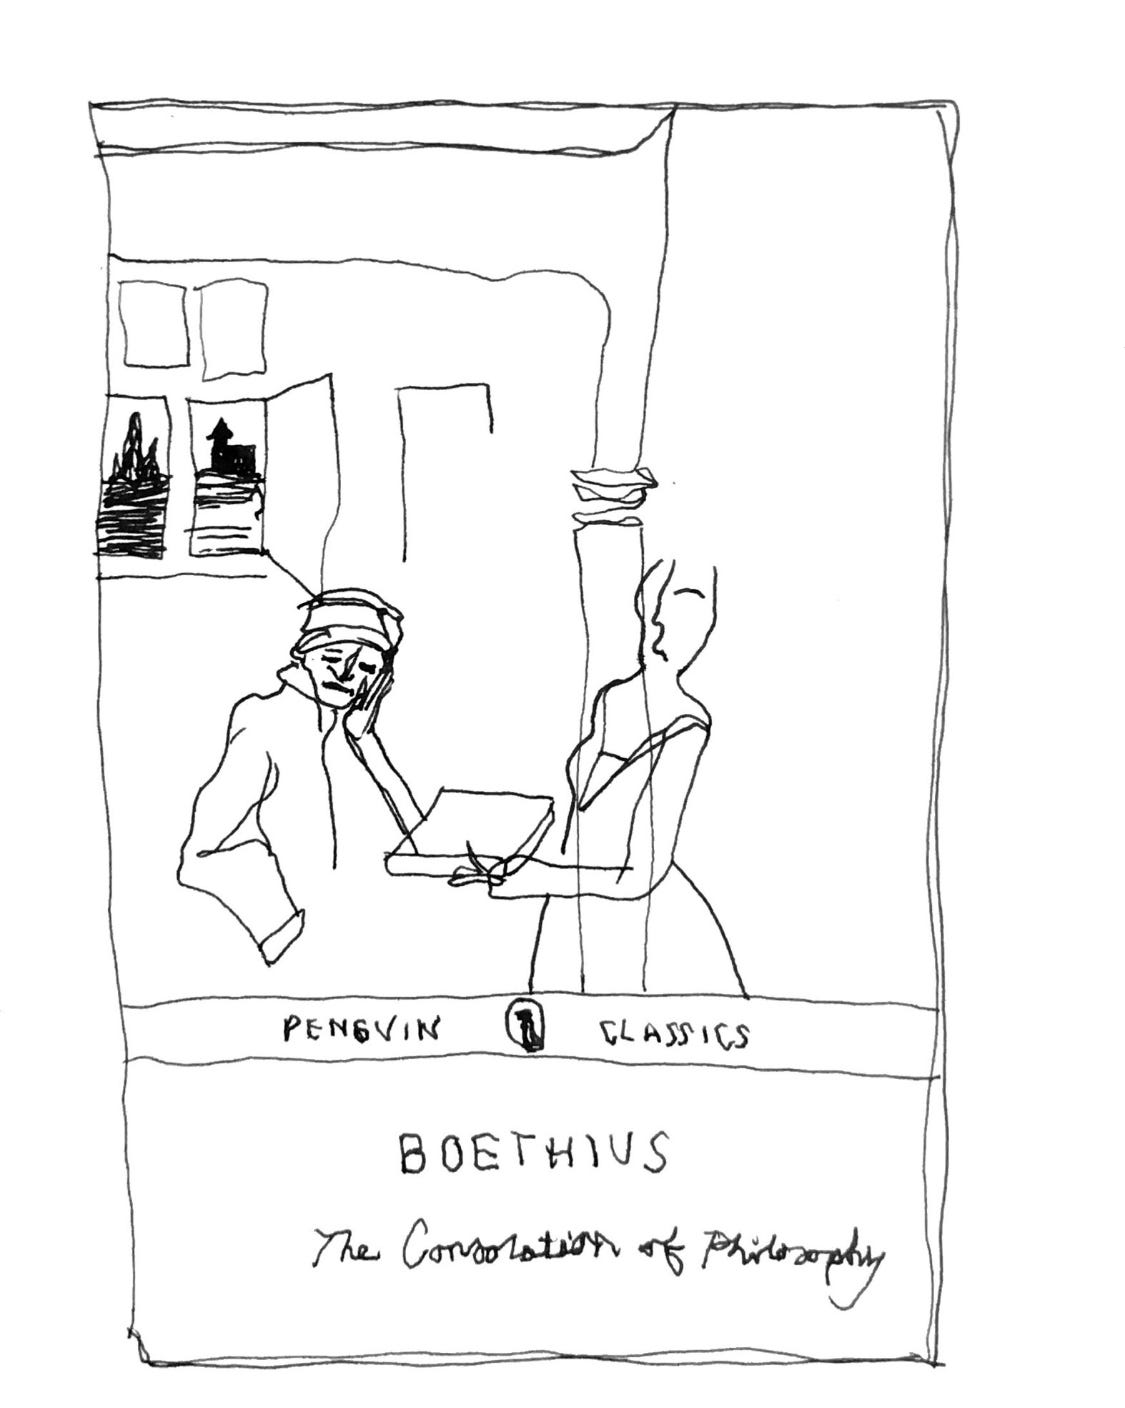 PENGUIN CLASSICS
BOETHIUS
The Consolation of Philosophy